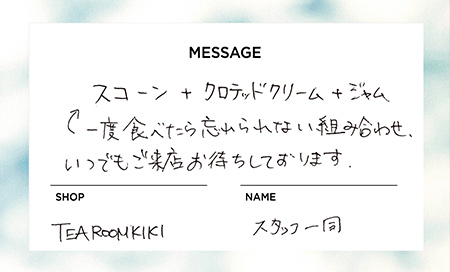 MESSAGE
スコーン + クロテッドクリーム + ジャム
↑一度食べたら忘れられない組み合わせ、
いつでもご来店お待ちしております.
SHOP
NAME
TEAROOMKIKI
スタッフ一同